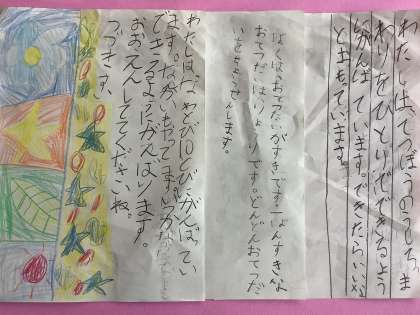 わたしは、てつぼうのうしろま
わりをひとりでできるよう
がんばっています。できたらいいな
とおもています。
ぼくは、おてつだいがすきです。一ばんすきな
おてつだいはりょうりです。どんどんおてつだ
いをちょうせんします。
わたしはなわとび10とびがんばってい
ます。なんかいもやってます。
できるようにがんばります。
おおえんしててくださいね。
つづきます、